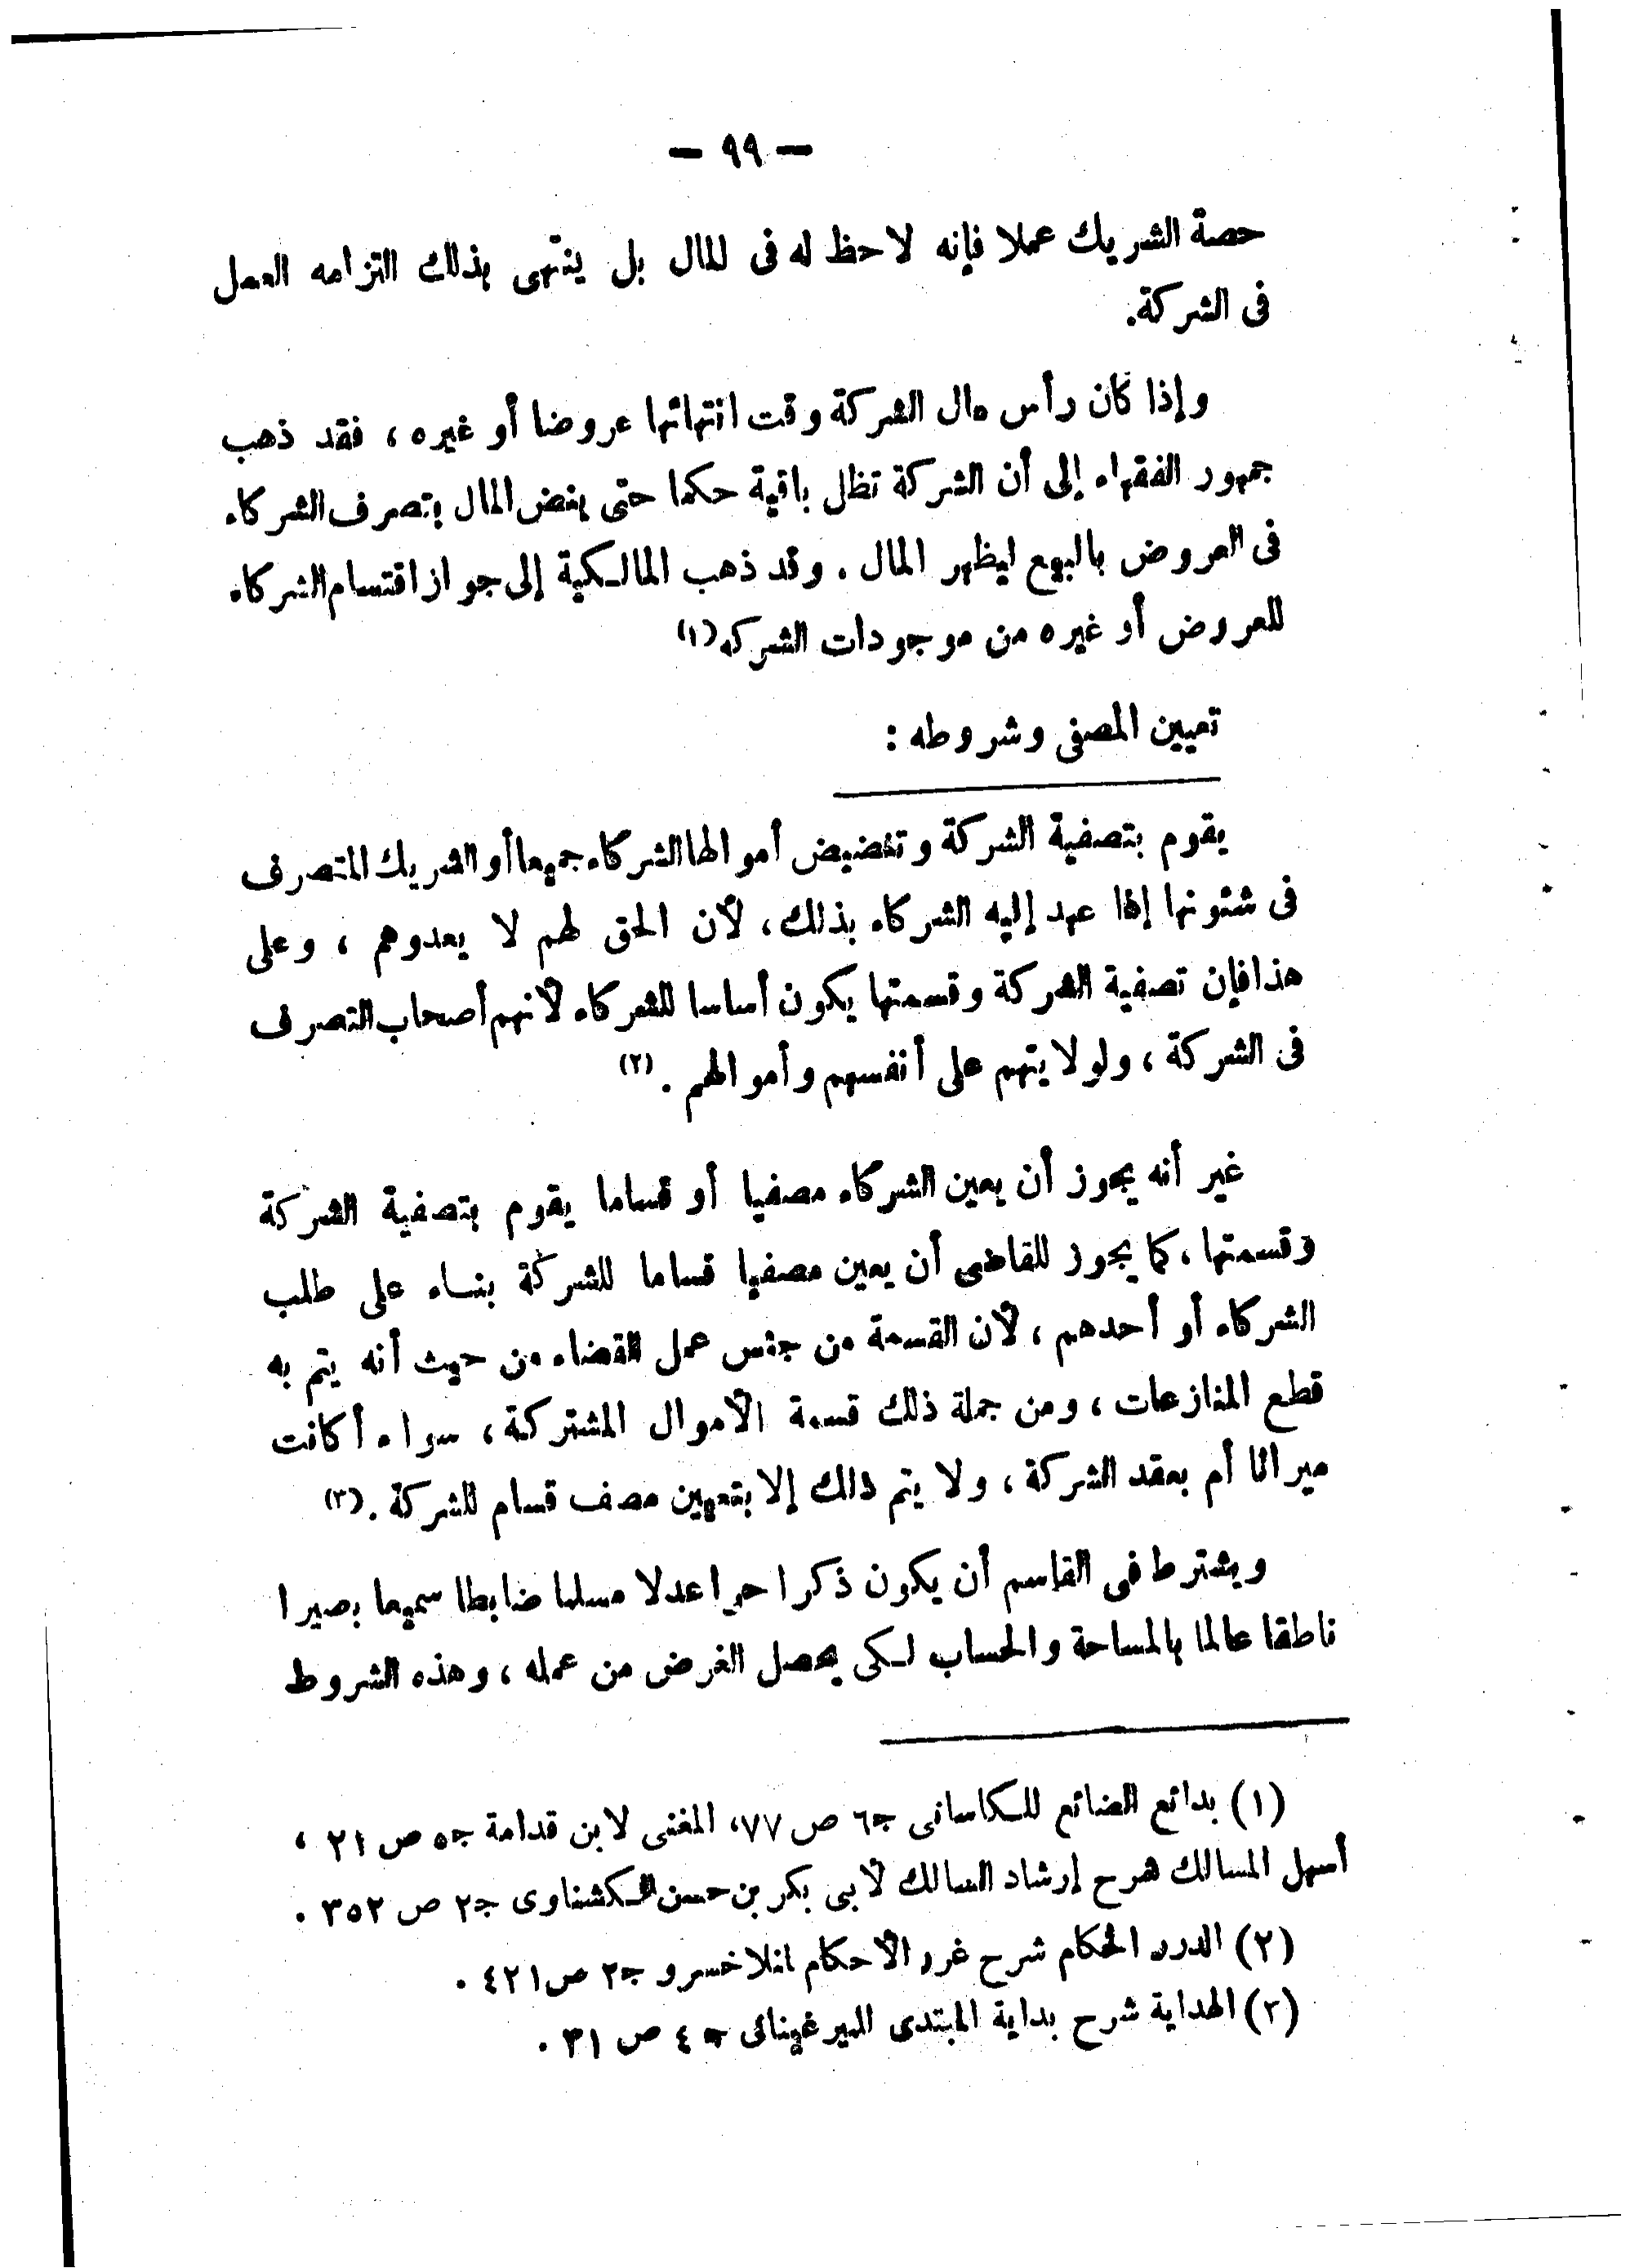 — ٩٩ —
حصة الشريك عملا فإنه لاحظ له فى المال بل ينتهى بذلك التزامه العمل
فى الشركة.
وإذا كان رأس مال الشركة وقت انتهائها عروضا أو غيره ، فقد ذهب
جمهور الفقهاء إلى أن الشركة تظل باقية حكما حتى ينض المال بتصرف الشركاء
فى العروض بالبيع ليظهر المال . وقد ذهب المالكية إلى جواز اقتسام الشركاء
للعروض أو غيره من موجودات الشركه (١)
تعيين المصفى وشروطه :
يقوم بتصفية الشركة وتنضيض أموالها الشركاء جميعا أو الشريك المتصرف
فى شئونها إذا عهد إليه الشركاء بذلك ، لأن الحق لهم لا يعدوهم ، وعلى
هذا فإن تصفية الشركة وقسمتها يكون أساسا للشركاء لأنهم أصحاب التصرف
فى الشركة ، ولولايتهم على أنفسهم وأموالهم . (٢)
غير أنه يجوز أن يعين الشركاء مصفيا أو قساما يقوم بتصفية الشركة
وقسمتها ، كما يجوز للقاضى أن يعين مصفيا قساما للشركة بناء على طلب
الشركاء أو أحدهم ، لأن القسمة من جنس عمل القضاء من حيث أنه يتم به
قطع المنازعات ، ومن جملة ذلك قسمة الأموال المشتركة ، سواء أكانت
ميراثا أم بعقد الشركة ، ولا يتم ذلك إلا بتعيين مصف قسام للشركة . (٣)
ويشترط فى القاسم أن يكون ذكرا حرا عدلا مسلما ضابطا سميعا بصيرا
ناطقا عالما بالمساحة والحساب لكى يحصل الغرض من عمله ، وهذه الشروط
(١) بدائع الصنائع للكاسانى ج٦ ص ٧٧، المغنى لابن قدامة ج٥ ص ٢١ ،
أسهل المسالك شرح إرشاد السالك لأبى بكر بن حسن الكشناوى ج٢ ص ٣٥٢ .
(٢) الدرر الحكام شرح غرر الأحكام لمنلاخسرو ج٢ ص٤٢١ .
(٣) الهداية شرح بداية المبتدى للميرغينانى ج ٤ ص ٣١ .